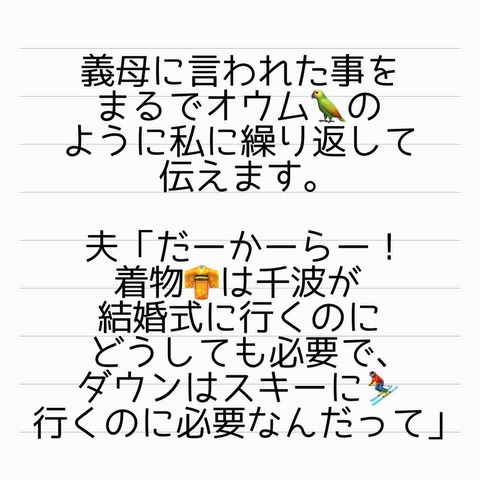 義母に言われた事を
まるでオウム🦜の
ように私に繰り返して
伝えます。
夫「だーかーらー！
着物👘は千波が
結婚式に行くのに
どうしても必要で、
ダウンはスキーに⛷
行くのに必要なんだって」